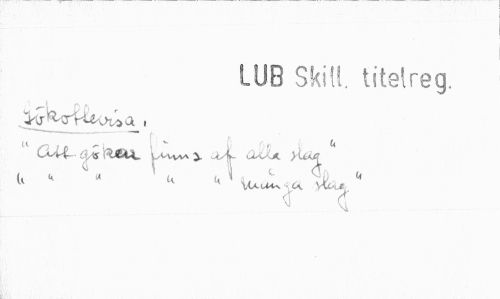 LUB Skill. titelreg.
Gökottevisa.
"Att gökar finns af alla slag"
" " " " " många slag"